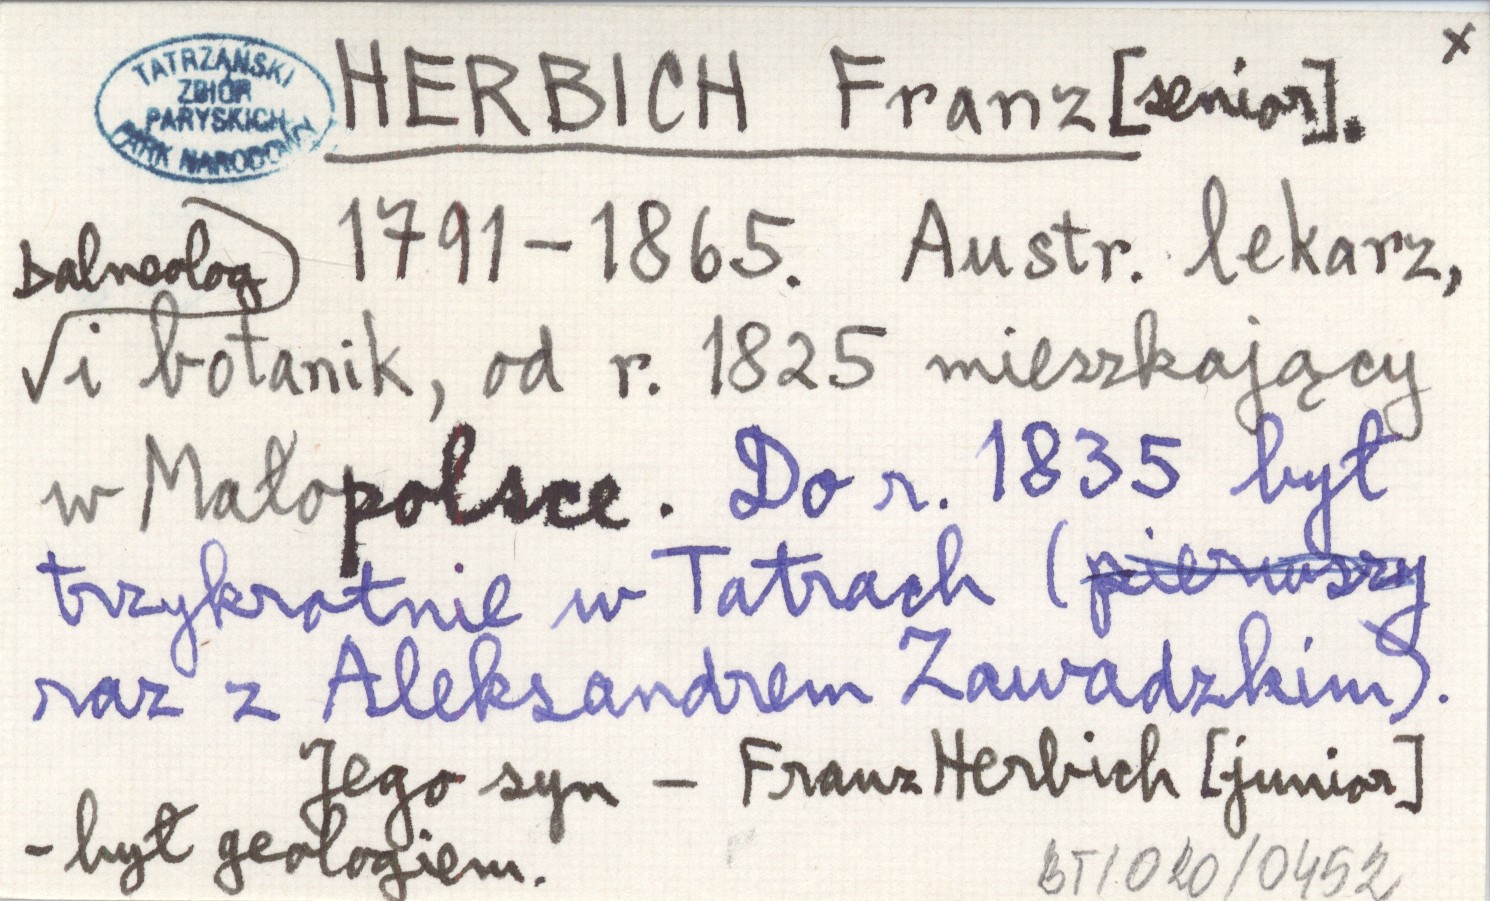 x
TATRZAŃSKI
ZBIÓR
PARYSKICH
PARK NARODOWY
HERBICH Franz [senior].
balneolog
1791-1865. Austr. lekarz,
√ i botanik, od r. 1825 mieszkający
w Małopolsce. Do r. 1835 był
trzykrotnie w Tatrach (pierwszy
raz z Aleksandrem Zawadzkim).
Jego syn - Franz Herbich [junior]
- był geologiem.
BT/020/0452